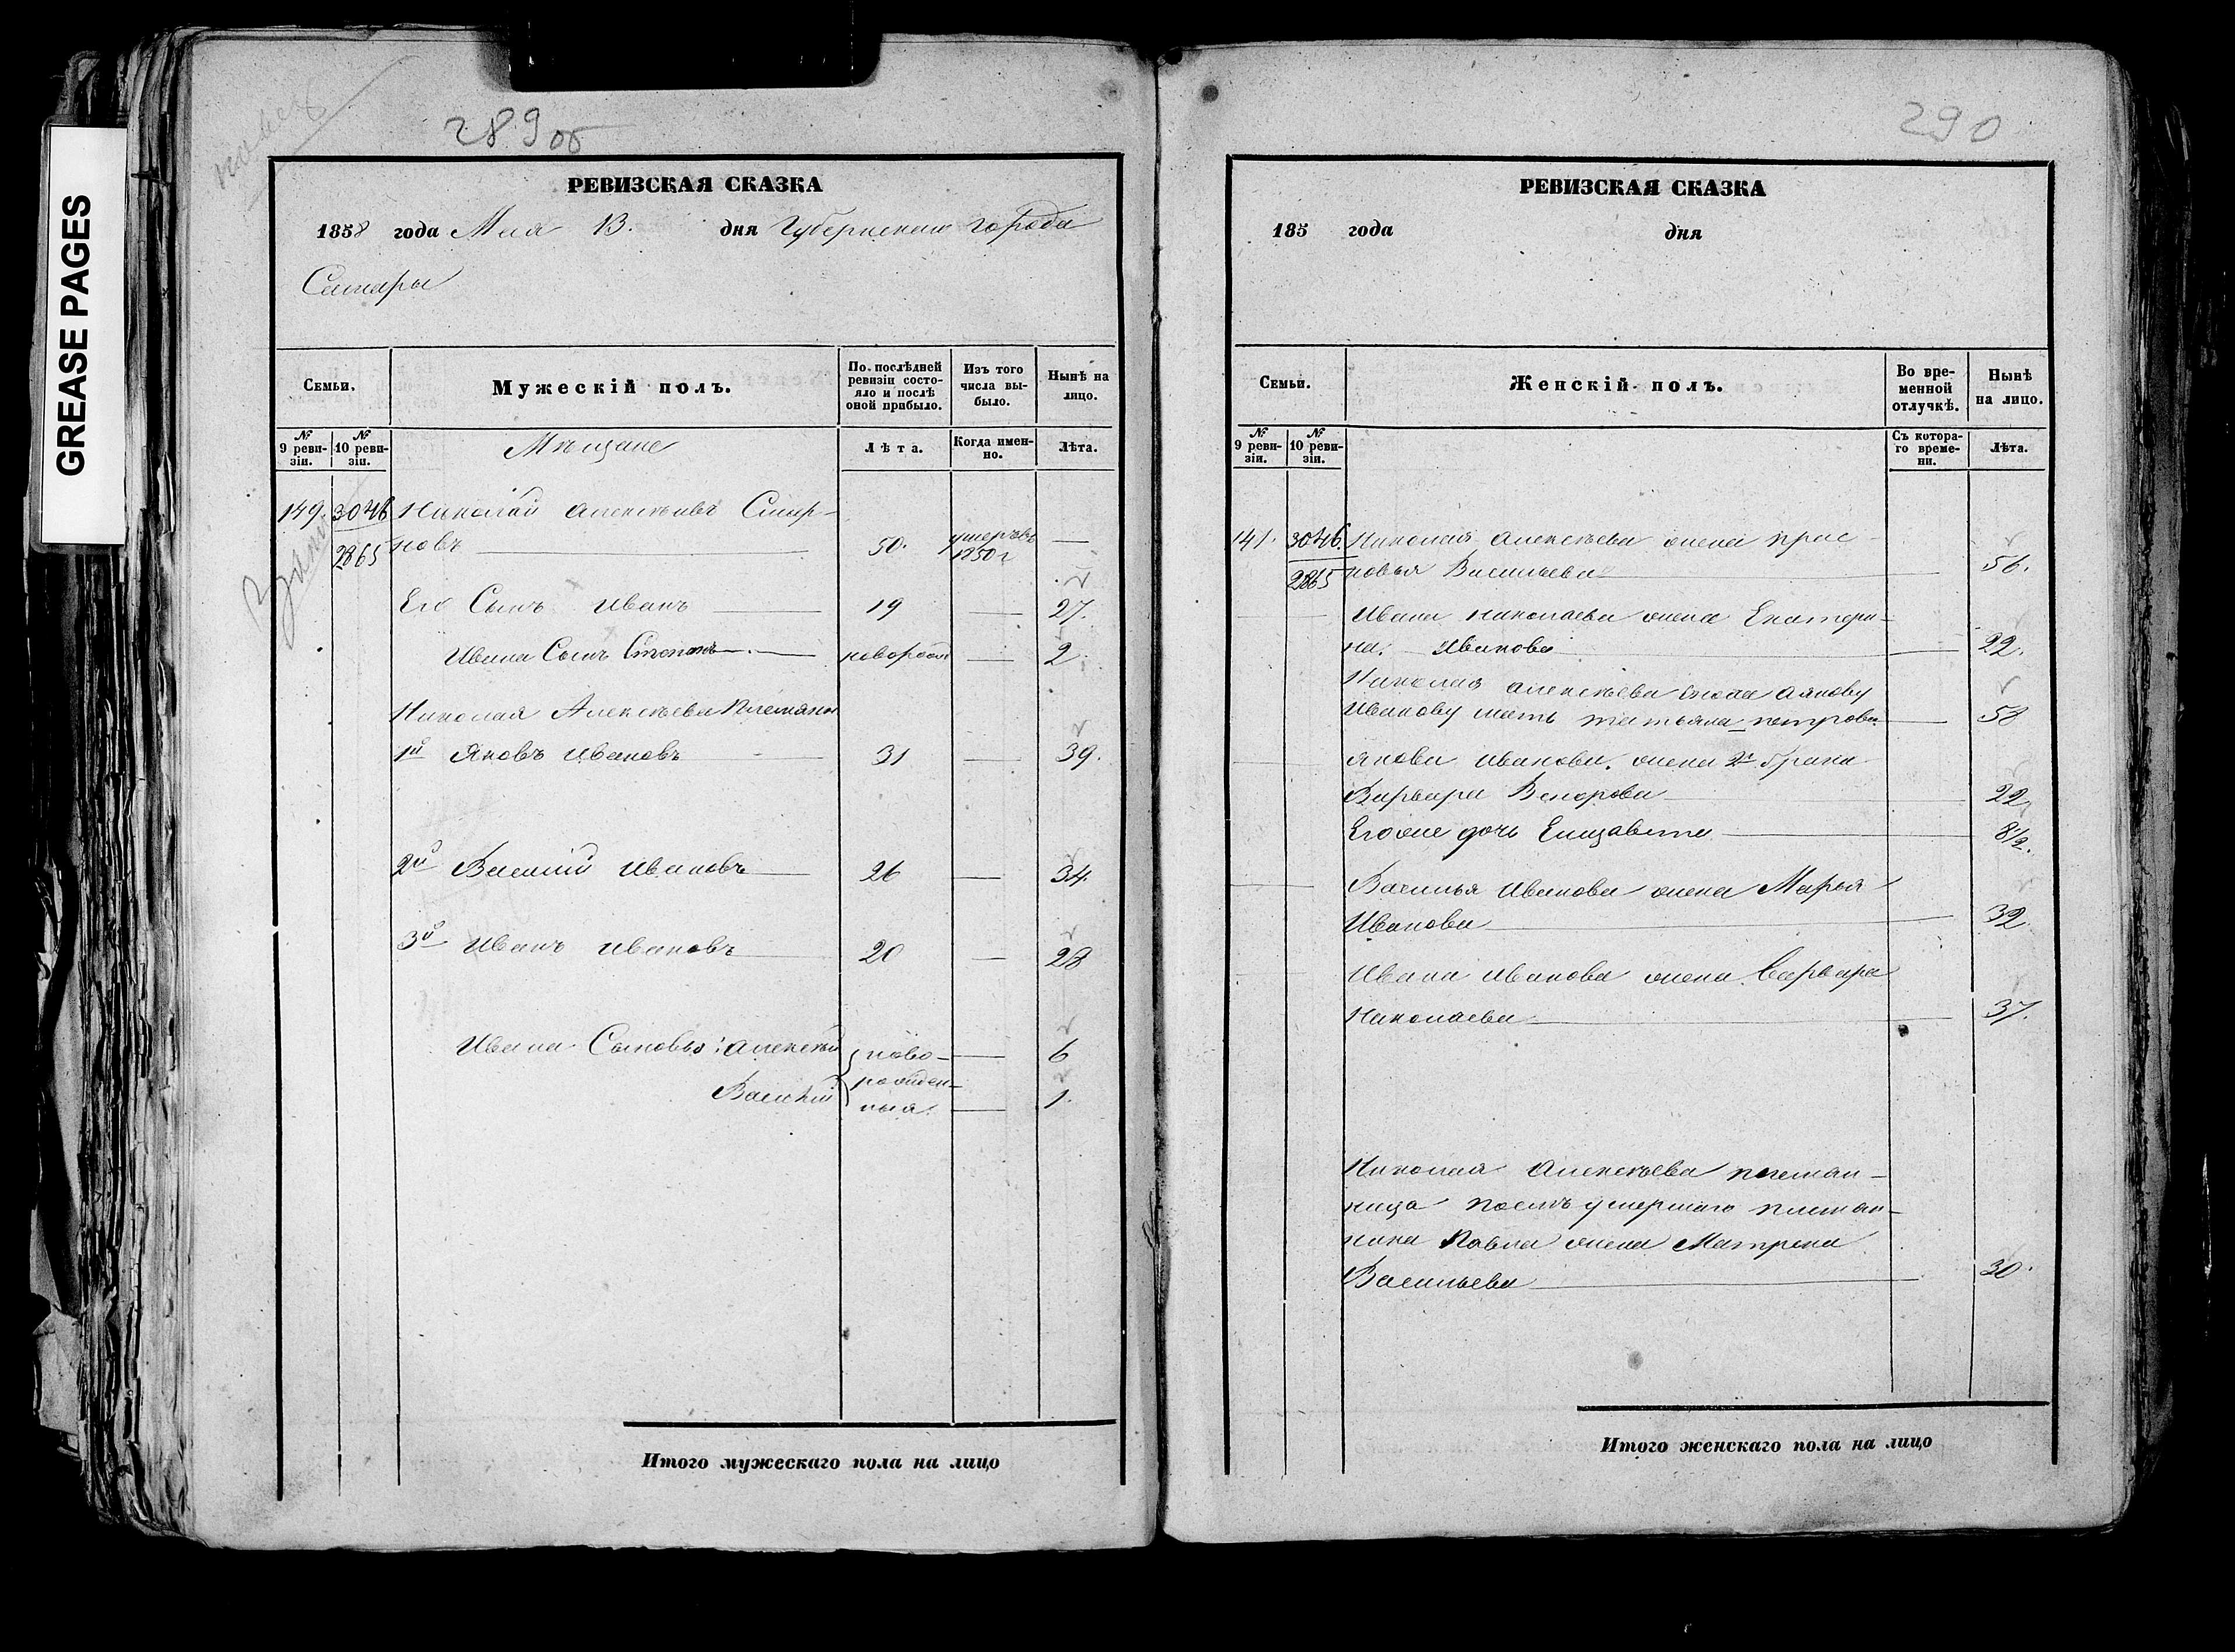 GREASE PAGES
289 об
РЕВИЗСКАЯ СКАЗКА
1858 года Мая 13. дня Губернскаго города
Самары
Семьи.
Мужескій полъ.
По послѣдней ревизіи состояло и послѣ оной прибыло.
Изъ того числа выбыло.
Нынѣ на лицо.
№ 9 ревизіи.
№ 10 ревизіи.
Мѣщане
Лѣта.
Когда именно.
Лѣта.
149. 3046 Николай Алексѣевъ Смир-
2865 новъ 50. умеръ въ 1850 г —
Его Сынъ Иванъ 19 — 27.
Ивана Сынъ Степанъ новорожд — 2.
Николая Алексѣева Племян
1й Яковъ Ивановъ 31 — 39.
2й Василій Ивановъ 26 — 34.
3й Иванъ Ивановъ 20 — 28
Ивана Сыновья: Алексѣй ново- — 6
рожден-
Василій ныя. — 1.
Итого мужескаго пола на лицо
290
РЕВИЗСКАЯ СКАЗКА
185 года дня
Семьи.
Женскій полъ.
Во временной отлучкѣ.
Нынѣ на лицо.
№ 9 ревизіи.
№ 10 ревизіи.
Съ котораго времени.
Лѣта.
3046. Николая Алексѣева жена Прас-
2865 ковья Васильева 56.
Ивана Николаева жена Екатери-
на Иванова 22.
Николая Алексѣева Якову
Иванову мать Татьяна Петрова 58
Якова Иванова жена 2го брака
Варвара 22
Его же дочь Елизавета 8½.
Василья Иванова жена Марья
Иванова 32
Ивана Иванова жена Варвара
Николаева 37.
Николая Алексѣева племян-
ница послѣ умершаго племян-
ника Павла жена Матрена
Васильева 30.
Итого женскаго пола на лицо